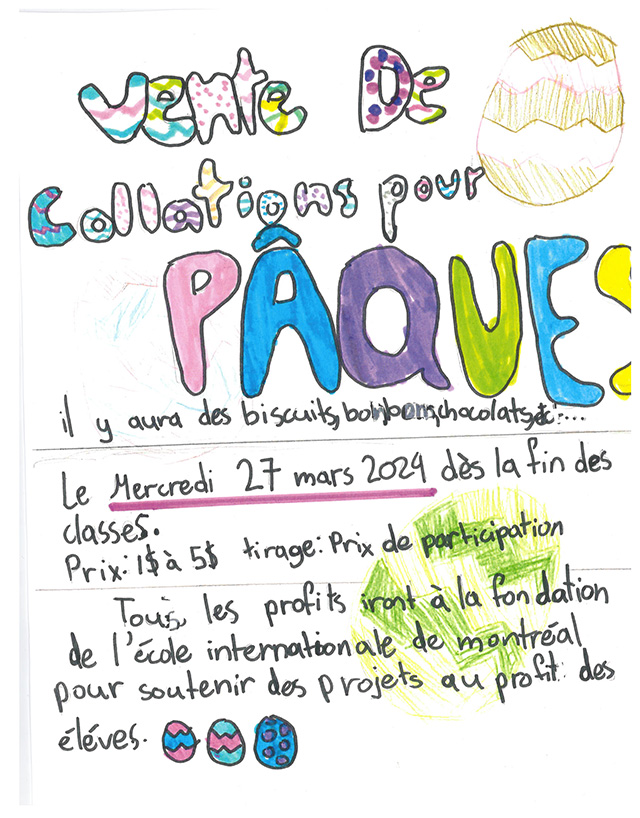 Vente De
Collations pour
PÂQUES
il y aura des biscuits, bonbons, chocolats, etc...
Le Mercredi 27 mars 2024 dès la fin des
classes.
Prix: 1$ à 5$ tirage: Prix de participation
Tous les profits iront à la fondation
de l'école internationale de montréal
pour soutenir des projets au profit des
éléves.